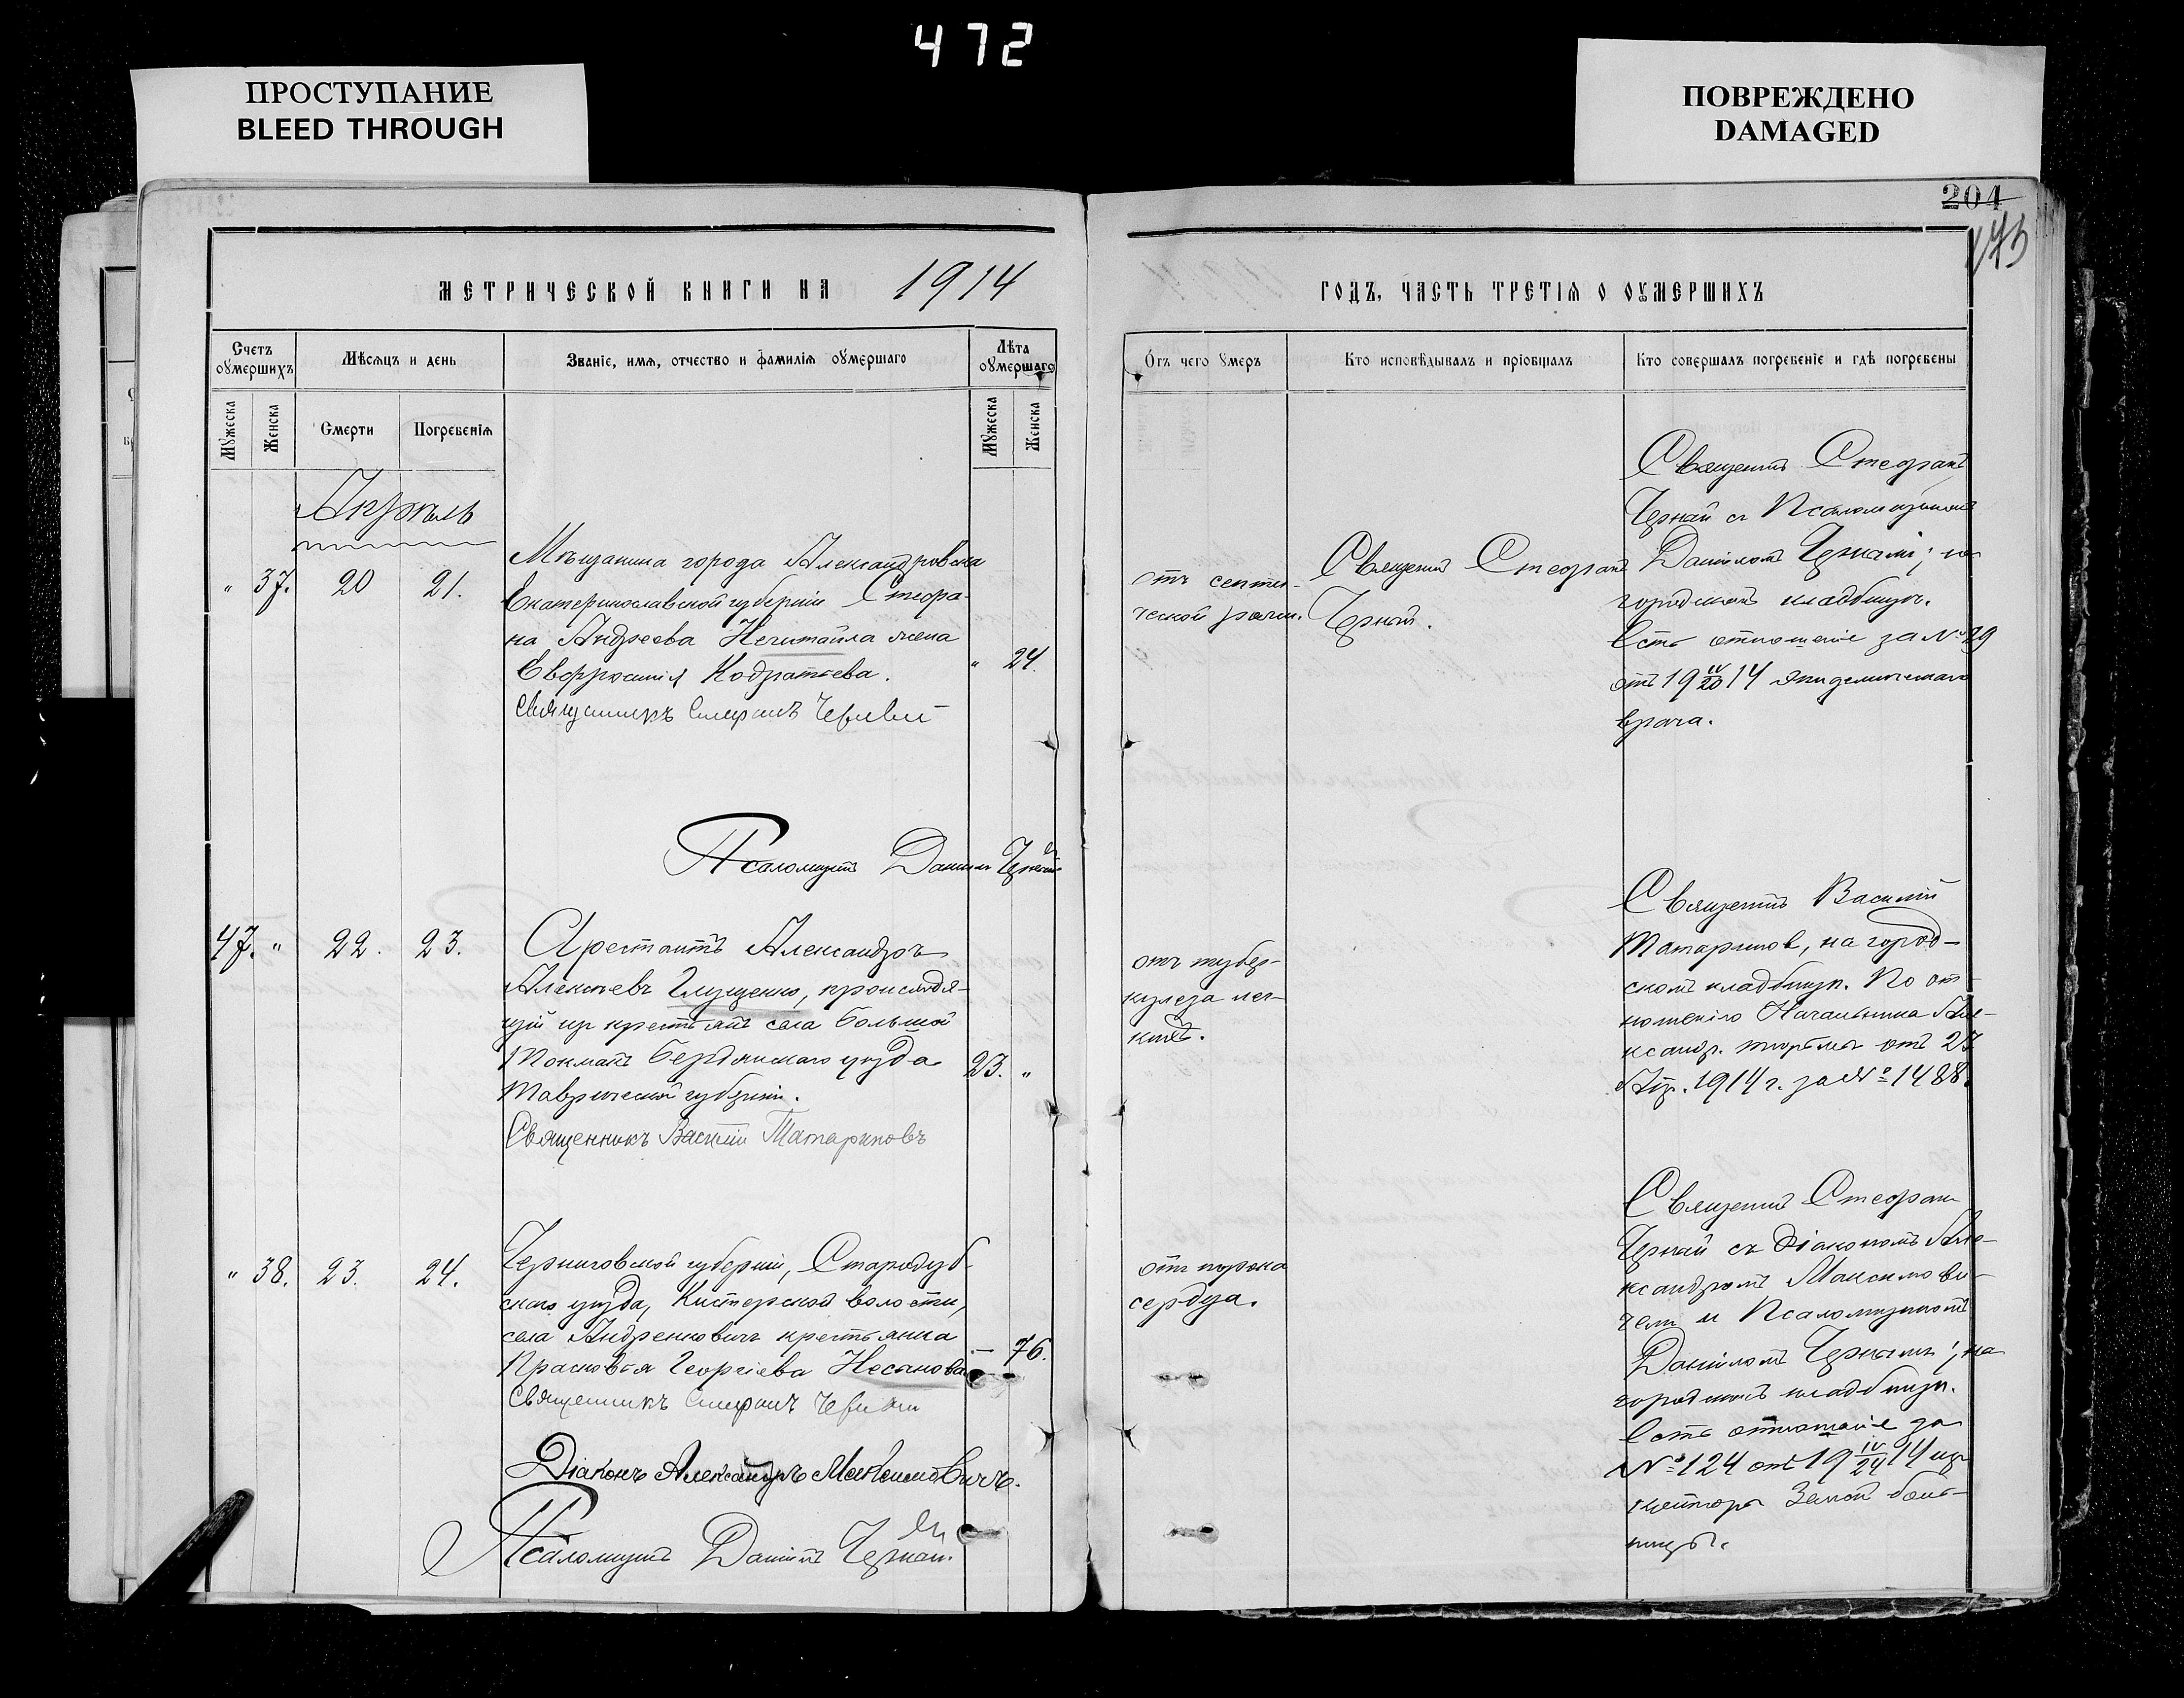 472
ПРОСТУПАНИЕ
BLEED THROUGH
ПОВРЕЖДЕНО
DAMAGED
204
МЕТРИЧЕСКОЙ КНИГИ НА 1914
Счетъ оумершихъ
Мѣсяцъ и день
Званіе, имя, отчество и фамилія оумершаго
Лѣта оумершаго
Мужеска
Женска
Смерти
Погребенія
Мужеска
Женска
Апрѣль
" 37. 20 21.
Мѣщанина города Александровска
Екатеринославской губерніи Стефа-
на Андреева Нечитайла жена
Евфросинія Кодратьева.
" 24.
Священникъ Стефанъ Черный
Псаломщикъ Даніилъ Черный
47. " 22. 23.
Арестантъ Александръ
Алексѣевъ Глущенко, происходя-
щій изъ крестьянъ села Большой
Токмакъ Бердянскаго уѣзда
Таврической губерніи.
23. "
Священникъ Василій Татариновъ
" 38. 23. 24.
Черниговской губерніи, Стародуб-
скаго уѣзда, Кистерской волости,
села Андрейковичъ крестьянка
Прасковья Георгіева Несанова
– 76.
Священникъ Стефанъ Черный
Діаконъ Александръ Максимовичъ.
Псаломщикъ Даніилъ Черный.
ГОДЪ, ЧАСТЬ ТРЕТІЯ О ОУМЕРШИХЪ
Отъ чего умеръ
Кто исповѣдывалъ и пріобщалъ
Кто совершалъ погребеніе и гдѣ погребены
отъ септи-
ческой
Священникъ Стефанъ
Черный.
Священникъ Стефанъ
Черный съ Псаломщикомъ
Даніиломъ Чернымъ; на
городскомъ кладбищѣ.
Есть отношеніе за №
отъ 19 IV/20 14 эпидемическаго
врача.
отъ тубер-
кулеза лег-
кихъ.
Священникъ Василій
Татаринов, на город-
скомъ кладбищѣ. По от-
ношенію Начальника Але-
ксандр. тюрьмы отъ 23
Апр. 1914 г. за № 1488.
отъ порока
сердца.
Священникъ Стефанъ
Черный съ Діакономъ Але-
ксандромъ Максимови-
чемъ и Псаломщикомъ
Даніиломъ Чернымъ; на
городскомъ кладбищѣ.
Есть отношеніе за
№ 124 отъ 19 IV/24 14 изъ
конторы Земской боль-
ницы.